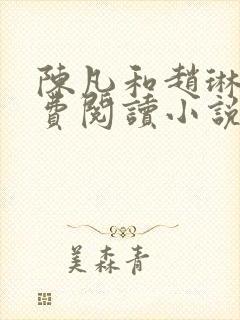 陳凡和趙琳
費閱讀小說
美森青